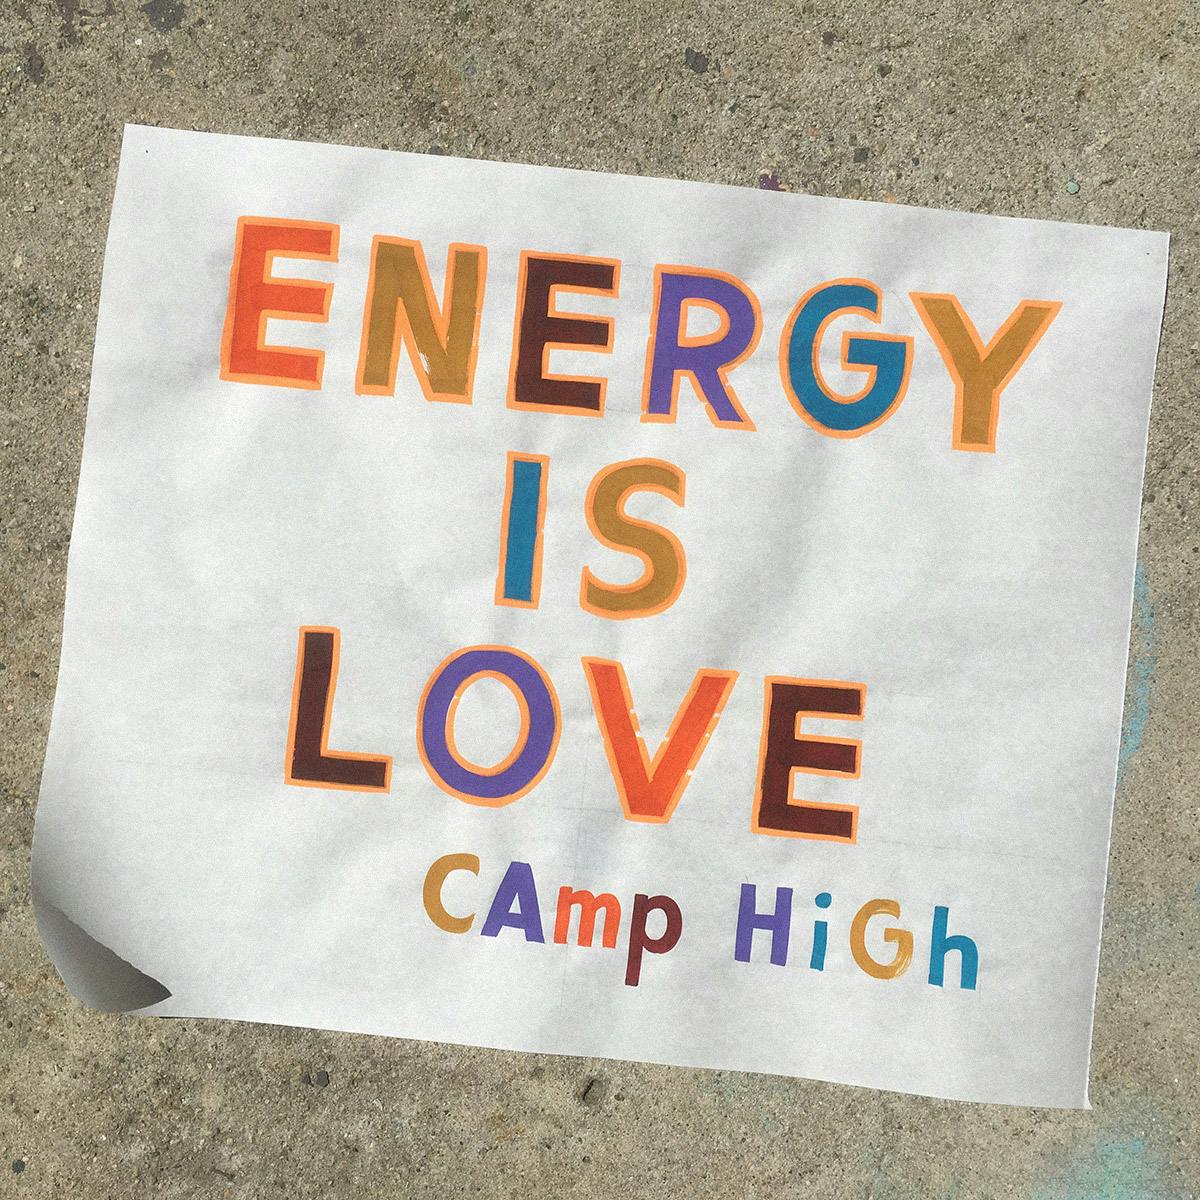 ENERGY
IS
LOVE
CAmp HiGh